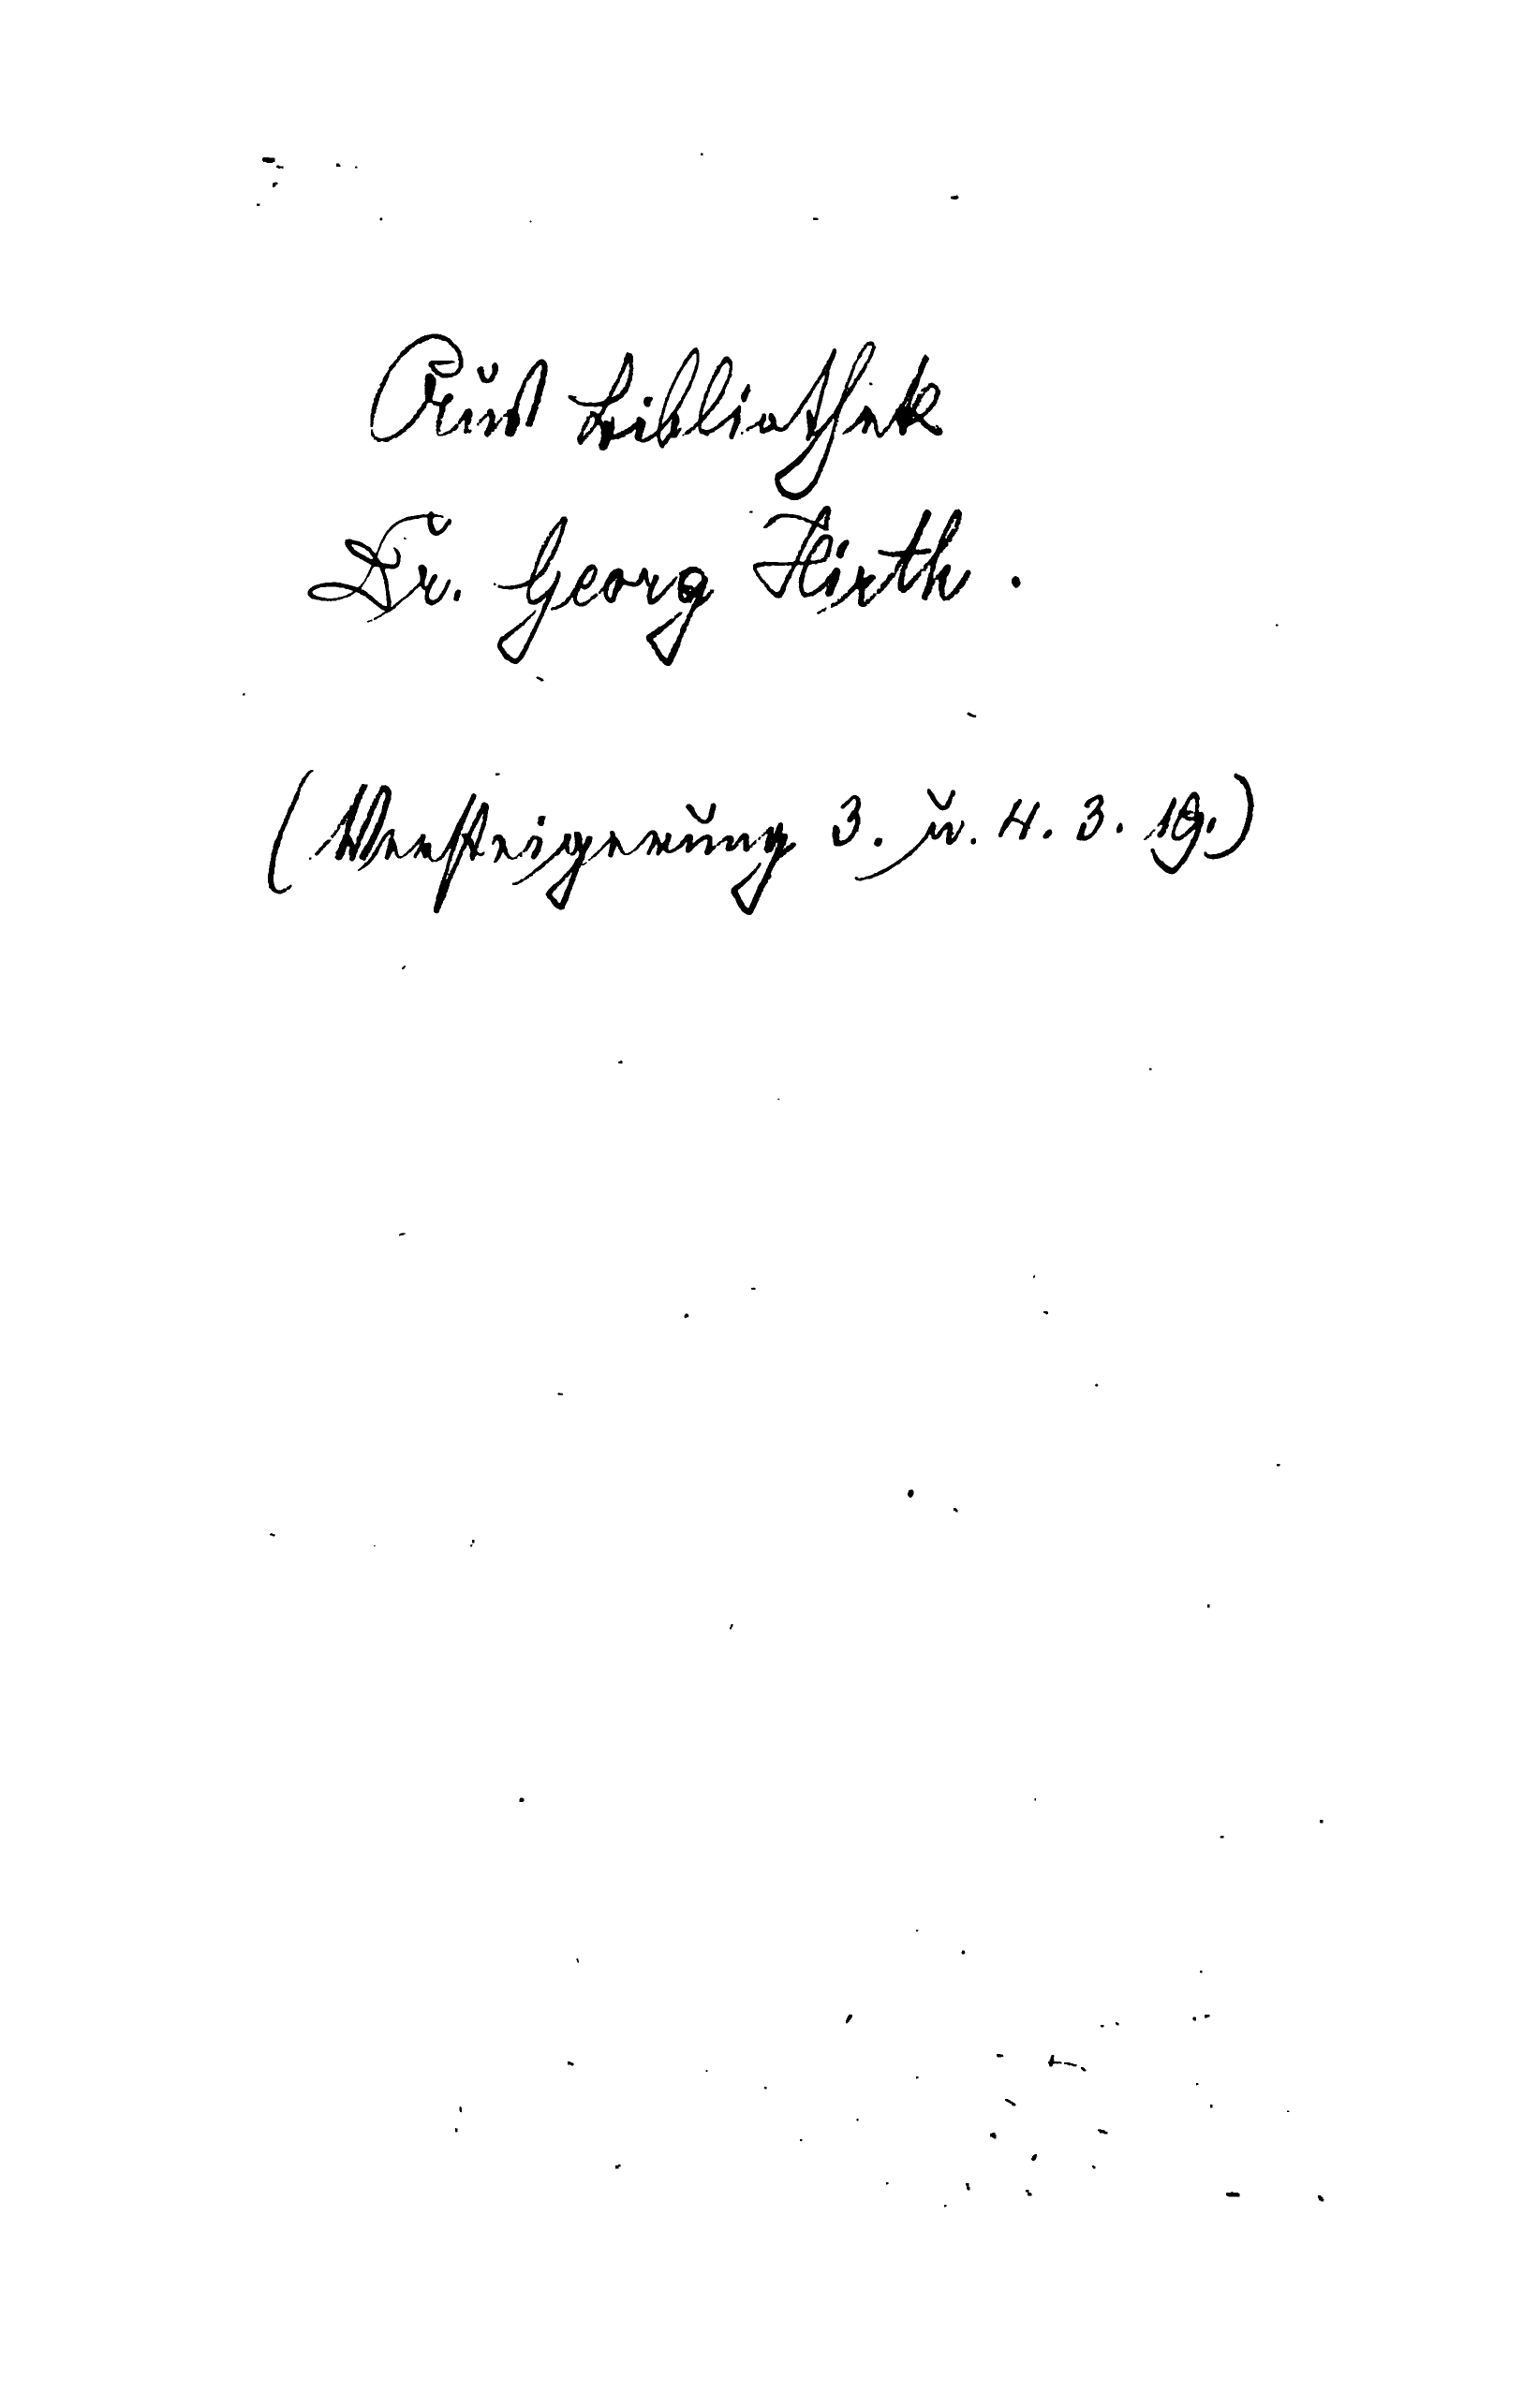 Aus Bibliothek
Dr. Georg Hirth.
(Versteigerung 3. u. 4. 3. 19.)